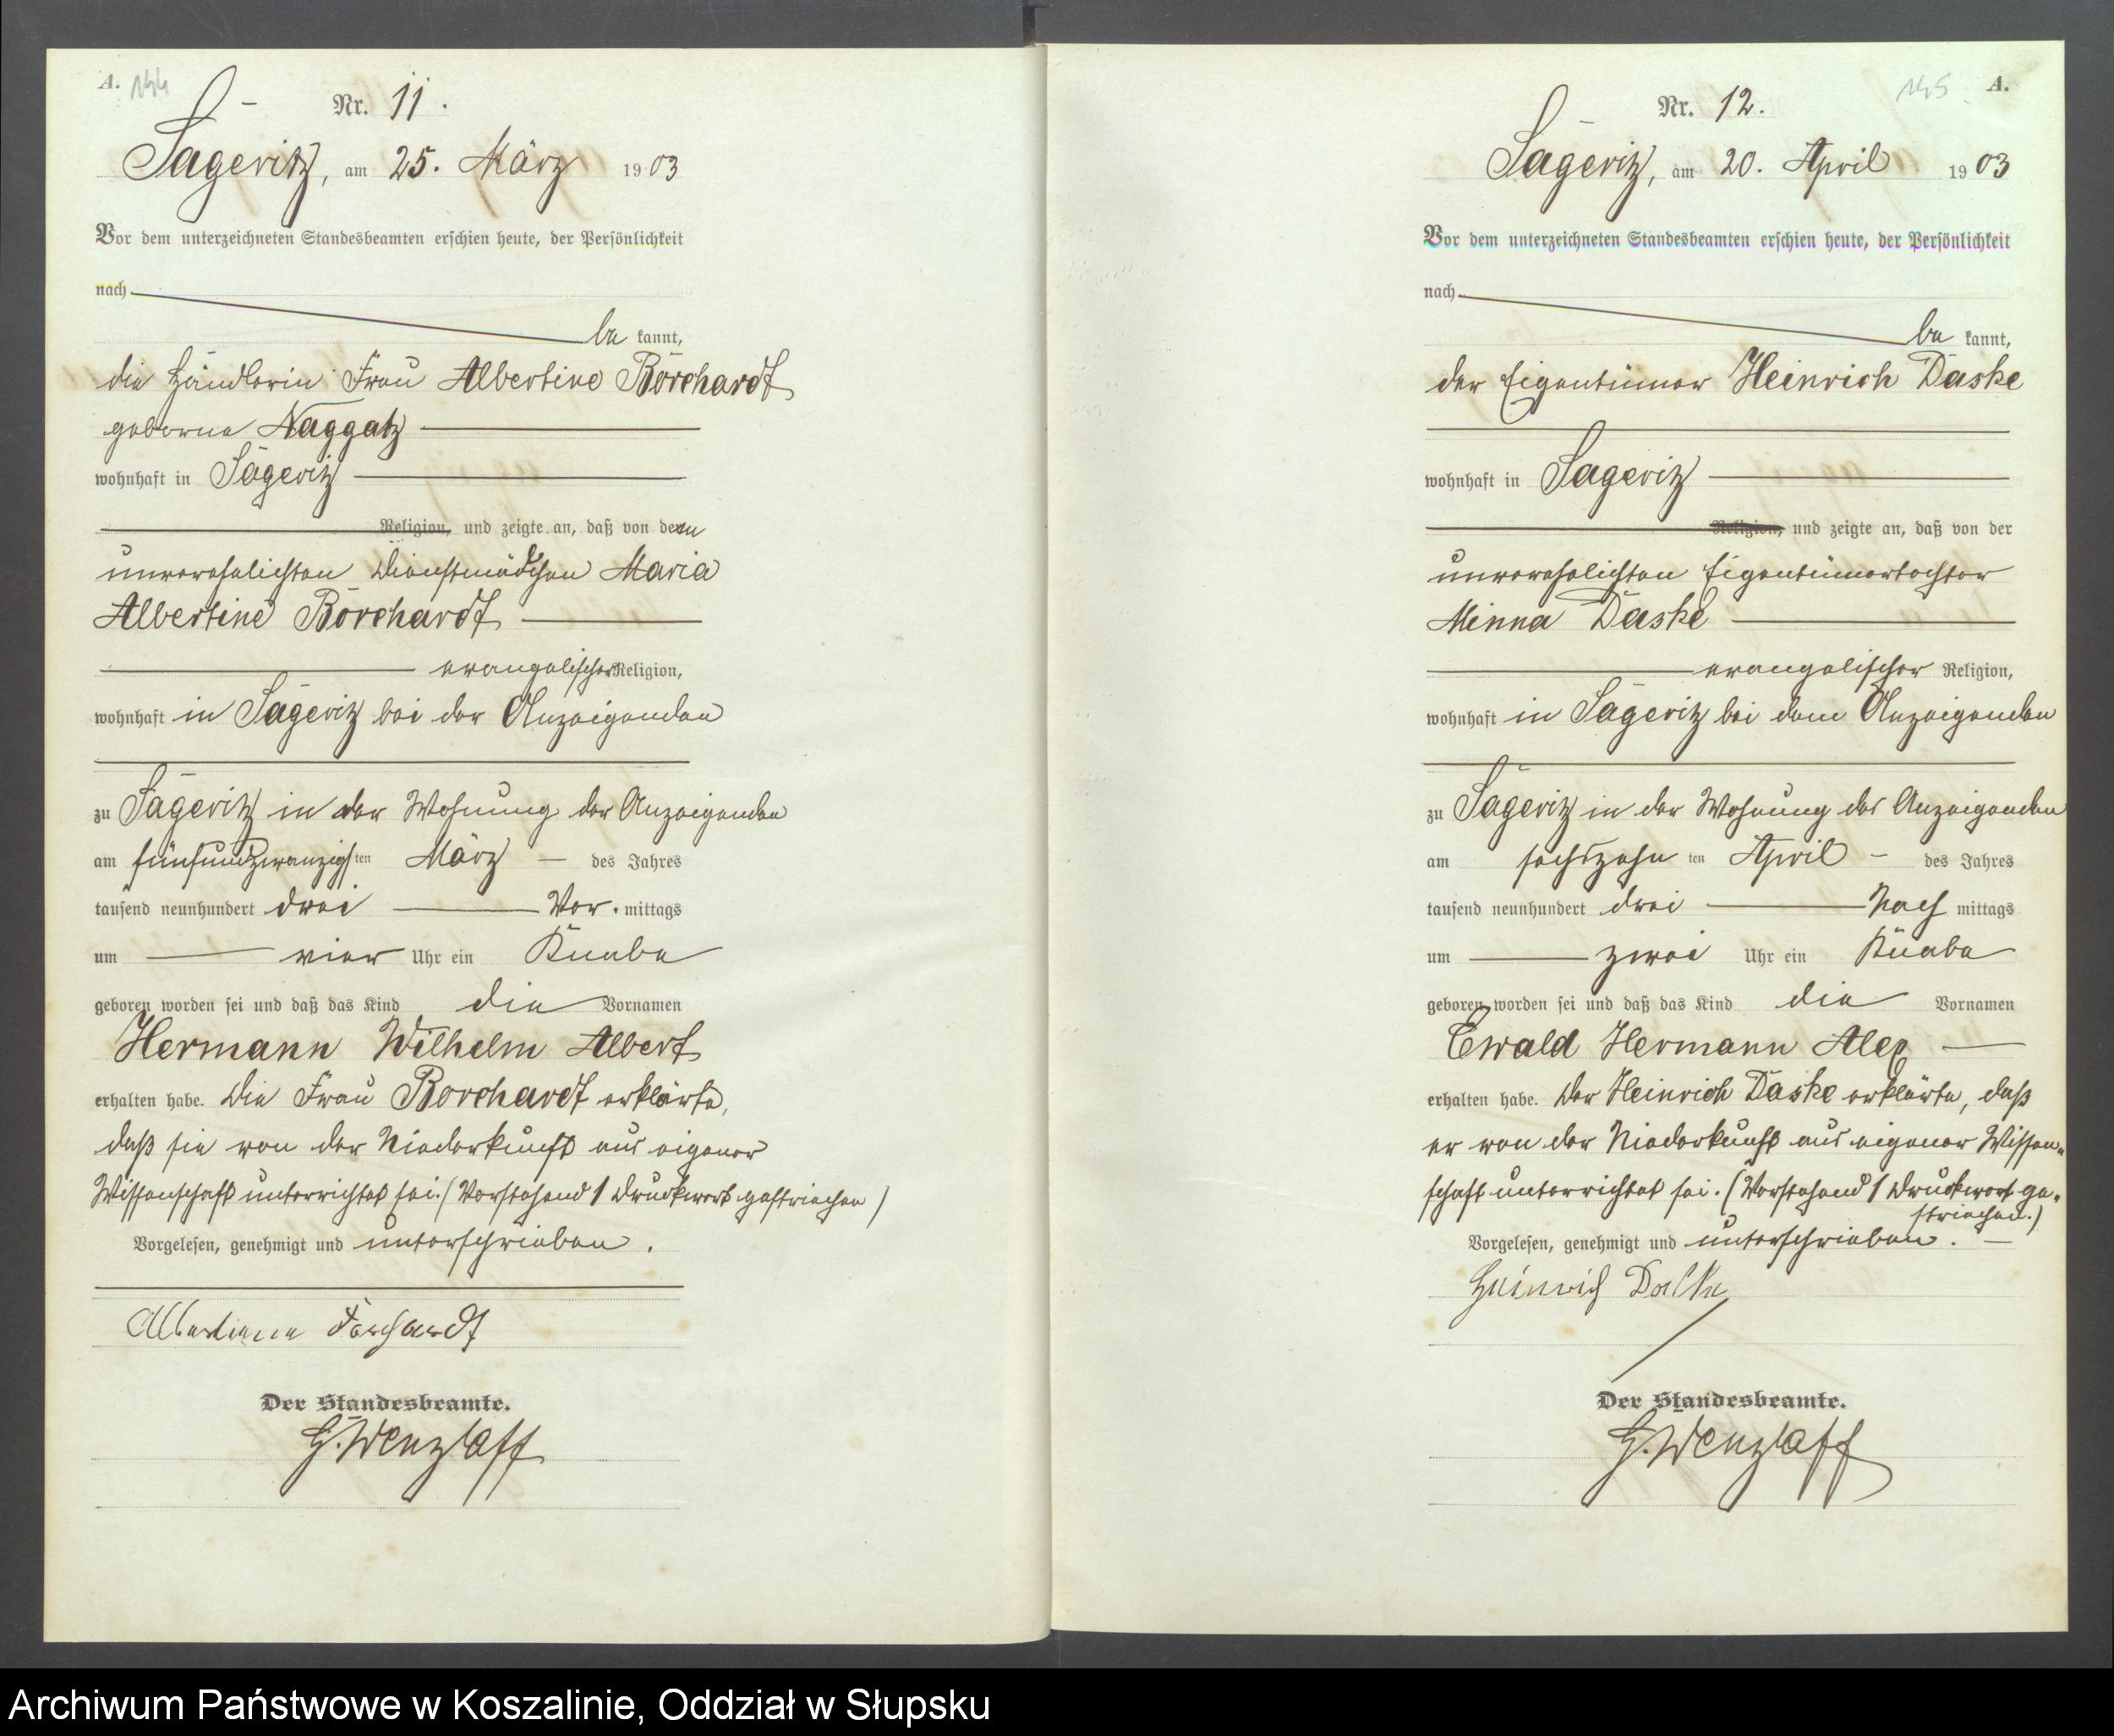 A. 144
Nr. 11.
Sageritz, am 25. März 1903
Vor dem unterzeichneten Standesbeamten erschien heute, der Persönlichkeit
nach
be kannt,
die Händlerin Frau Albertine Borchardt
geborne Naggatz
wohnhaft in Sageritz
Religion, und zeigte an, daß von dem
unverehelichten Dienstmädchen Maria
Albertine Borchardt
evangelischer Religion,
wohnhaft in Sageritz bei der Anzeigenden
zu Sageritz in der Wohnung der Anzeigenden
am fünfundzwanzigsten März des Jahres
tausend neunhundert drei Vor. mittags
um vier Uhr ein Knabe
geboren worden sei und daß das Kind die Vornamen
Hermann Wilhelm Albert
erhalten habe. Die Frau Borchardt erklärte,
daß sie von der Niederkunft aus eigener
Wissenschaft unterrichtet sei. (Vorstehend 1 Druckwort gestrichen)
Vorgelesen, genehmigt und unterschrieben.
Albertiene Borchardt
Der Standesbeamte.
H. Wenzlaff
145 A.
Nr. 12.
Sageritz, am 20. April 1903
Vor dem unterzeichneten Standesbeamten erschien heute, der Persönlichkeit
nach
be kannt,
der Eigentümer Heinrich Daske
wohnhaft in Sageritz
Religion, und zeigte an, daß von der
unverehelichten Eigentümertochter
Minna Daske
evangelischer Religion,
wohnhaft in Sageritz bei dem Anzeigenden
zu Sageritz in der Wohnung des Anzeigenden
am sechszehn ten April des Jahres
tausend neunhundert drei Nach mittags
um zwei Uhr ein Knabe
geboren worden sei und daß das Kind die Vornamen
Ewald Hermann Alex
erhalten habe. Der Heinrich Daske erklärte, daß
er von der Niederkunft aus eigener Wissen-
schaft unterrichtet sei. (Vorstehend 1 Druckwort ge-
strichen.)
Vorgelesen, genehmigt und unterschrieben.
Heinrich Daske
Der Standesbeamte.
H. Wenzlaff
Archiwum Państwowe w Koszalinie, Oddział w Słupsku